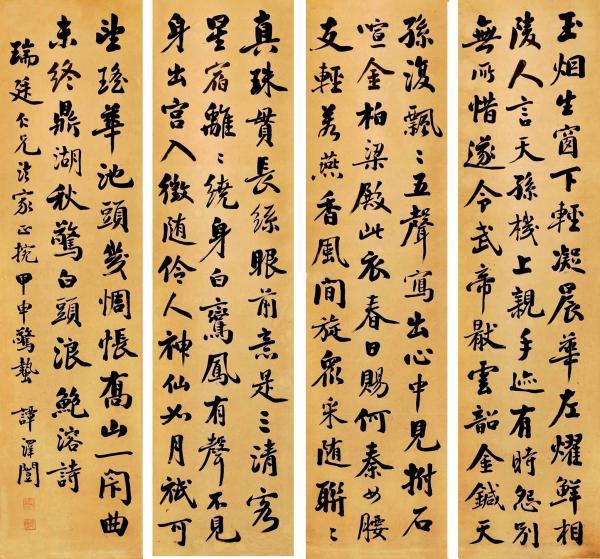 玉烟生窗下輕凝晨華左耀鮮相
陵人言天孫機上親手迹有時怨別
無所惜遂令武帝厭雲韶金鍼天
絲綴飄〻五聲寫出心中見拊石
喧金柏梁殿此衣春日賜何秦女腰
支輕若燕香風間旋眾采随聯〻
真珠貫長絲眼前意是三清客
星宿離〻繞身白鸞鳳有聲不見
身出宮入徵随伶人神仙如月祇可
望瑤華池頭幾惆悵喬山一閉曲
未終鼎湖秋驚白頭浪鮑溶詩
瑞廷仁兄法家正捥甲申驚蟄 譚澤闓